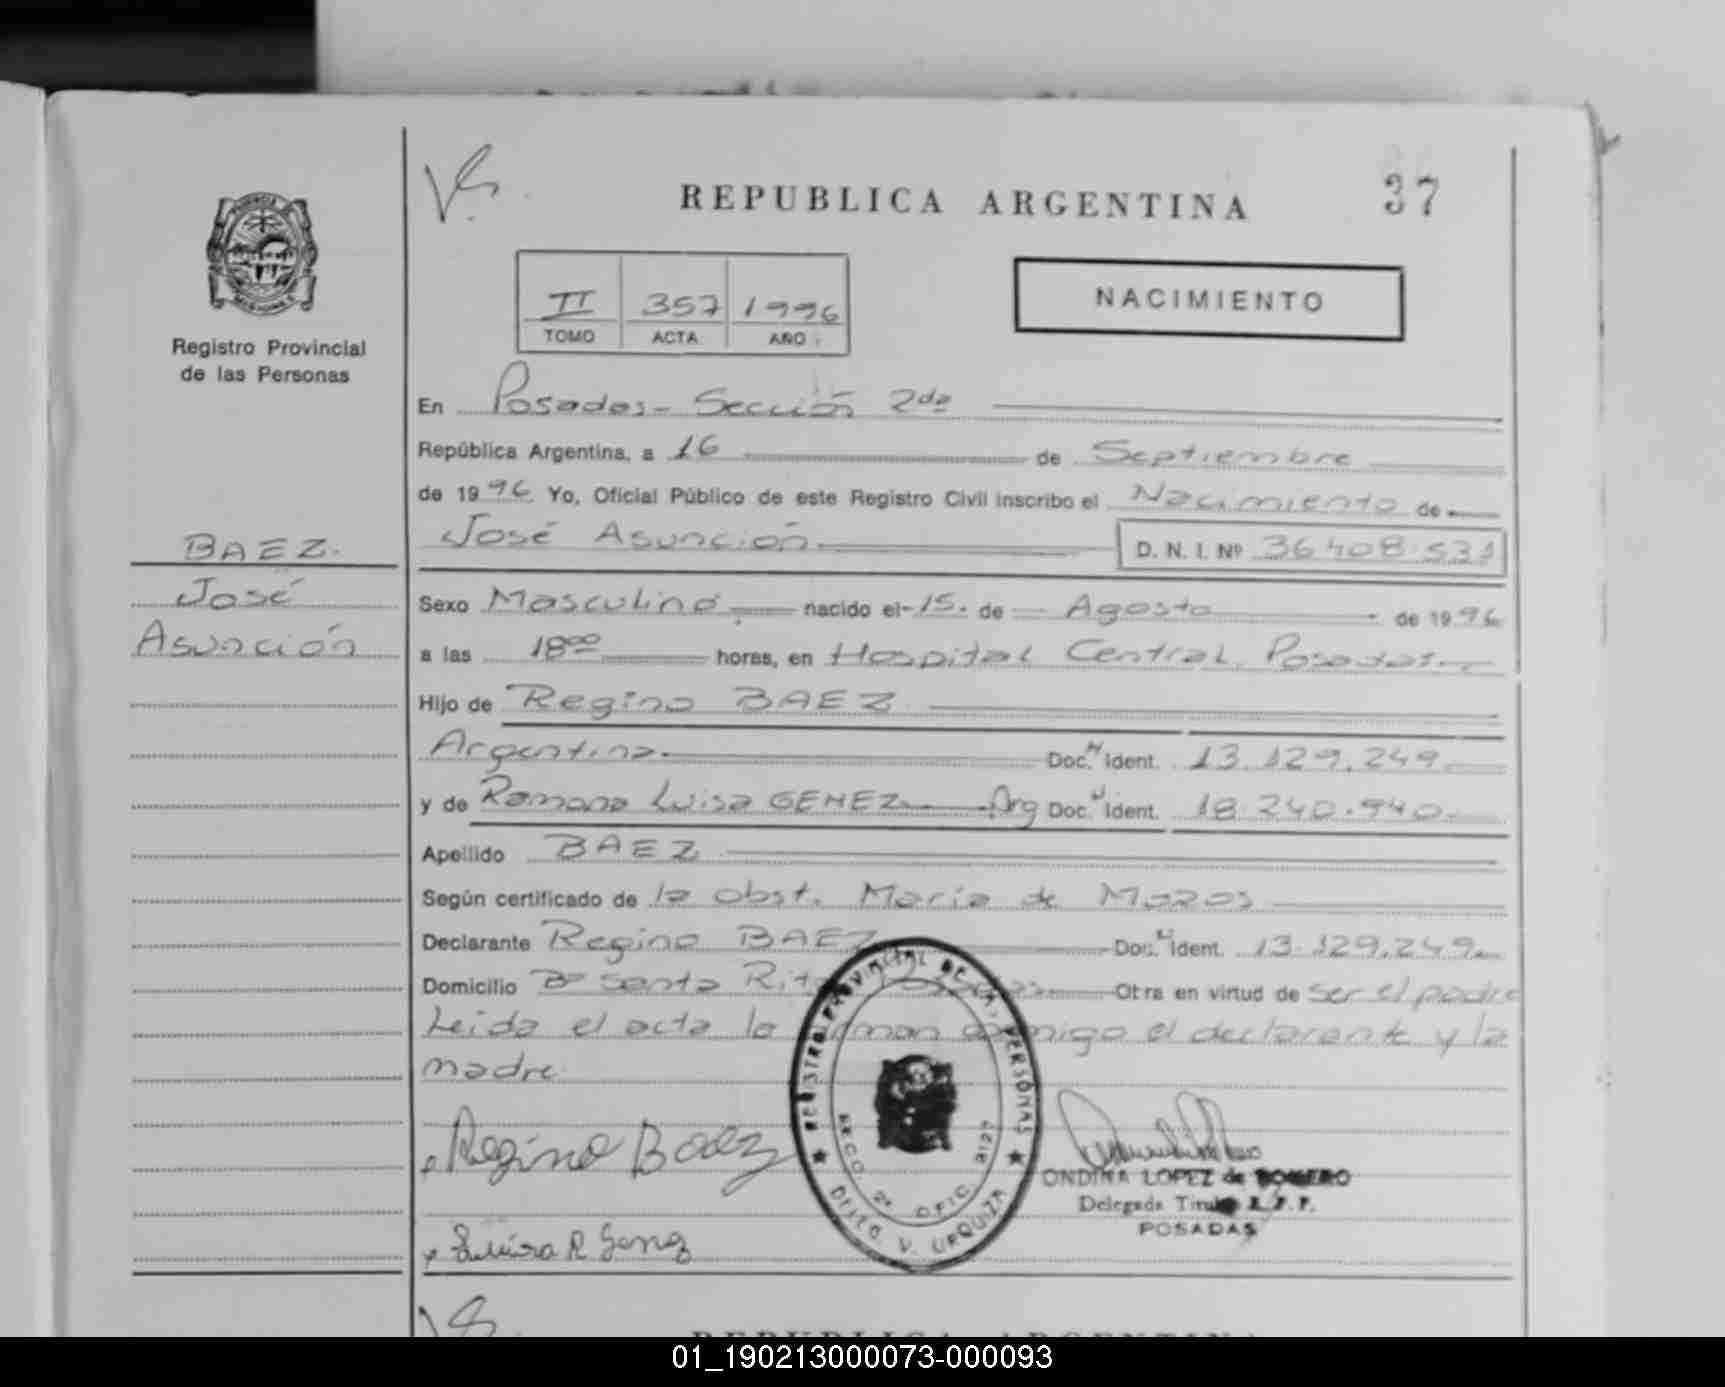 REPUBLICA ARGENTINA
37
II 357 1996
TOMO ACTA AÑO
NACIMIENTO
Registro Provincial
de las Personas
BAEZ.
José
Asunción
En Posadas - Sección 2da
República Argentina, a 16 de Septiembre
de 1996 Yo, Oficial Público de este Registro Civil inscribo el Nacimiento de
José Asunción D. N. I. Nº 36.408.531
Sexo Masculino nacido el 15 de Agosto de 1996
a las 18 00 horas, en Hospital Central Posadas
Hijo de Regino BAEZ
Argentina Doc. Ident. 13.129.249
y de Ramona Luisa GEMEZ Arg Doc. Ident. 18.240.940.
Apellido BAEZ
Según certificado de la obst. María de Mozos
Declarante Regino BAEZ Doc. Ident. 13.129.249
Domicilio Bº Santa Rita Posadas Otra en virtud de ser el padre
Leida el acta la firman conmigo el declarante y la
madre.
Regino Baez
REGISTRO PROVINCIAL DE LAS PERSONAS
SECC. 2ª OFIC. 3127
DPTO. V. URQUIZA
ONDINA LOPEZ de ROMERO
Delegada Titular R.P.P.
POSADAS
REPUBLICA ARGENTINA
01_190213000073-000093